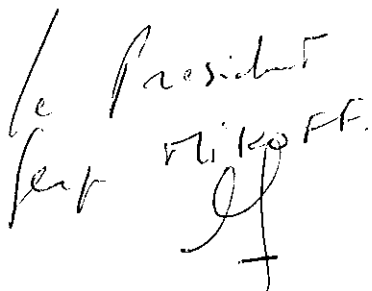 le President
Serge MikoFF.